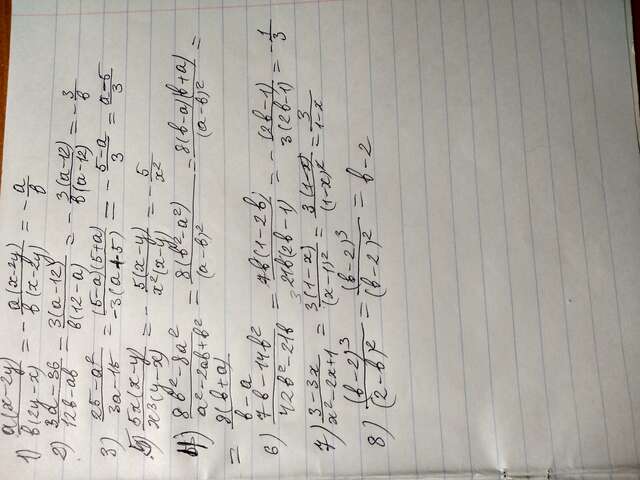 1) a(x-2y)/b(2y-x) = - a(x-2y)/b(x-2y) = - a/b
2) 3a-36/12b-ab = 3(a-12)/b(12-a) = - 3(a-12)/b(a-12) = - 3/b
3) 25-a²/3a-15 = (5-a)(5+a)/-3(a+5) = - 5-a/3 = a-5/3
5) 5x(x-y)/x3(y-x) = - 5(x-y)/x²(x-y) = - 5/x²
4) 8b²-8a²/a²-2ab+b² = 8(b²-a²)/(a-b)² = 8(b-a)(b+a)/(a-b)² =
= 8(b+a)/b-a
6) 7b-14b²/42b²-21b = 7b(1-2b)/21b(2b-1) = - (2b-1)/3(2b-1) = - 1/3
7) 3-3x/x²-2x+1 = 3(1-x)/(x-1)² = 3(1-x)/(1-x)² = 3/1-x
8) (b-2)³/(2-b)² = (b-2)³/(b-2)² = b-2